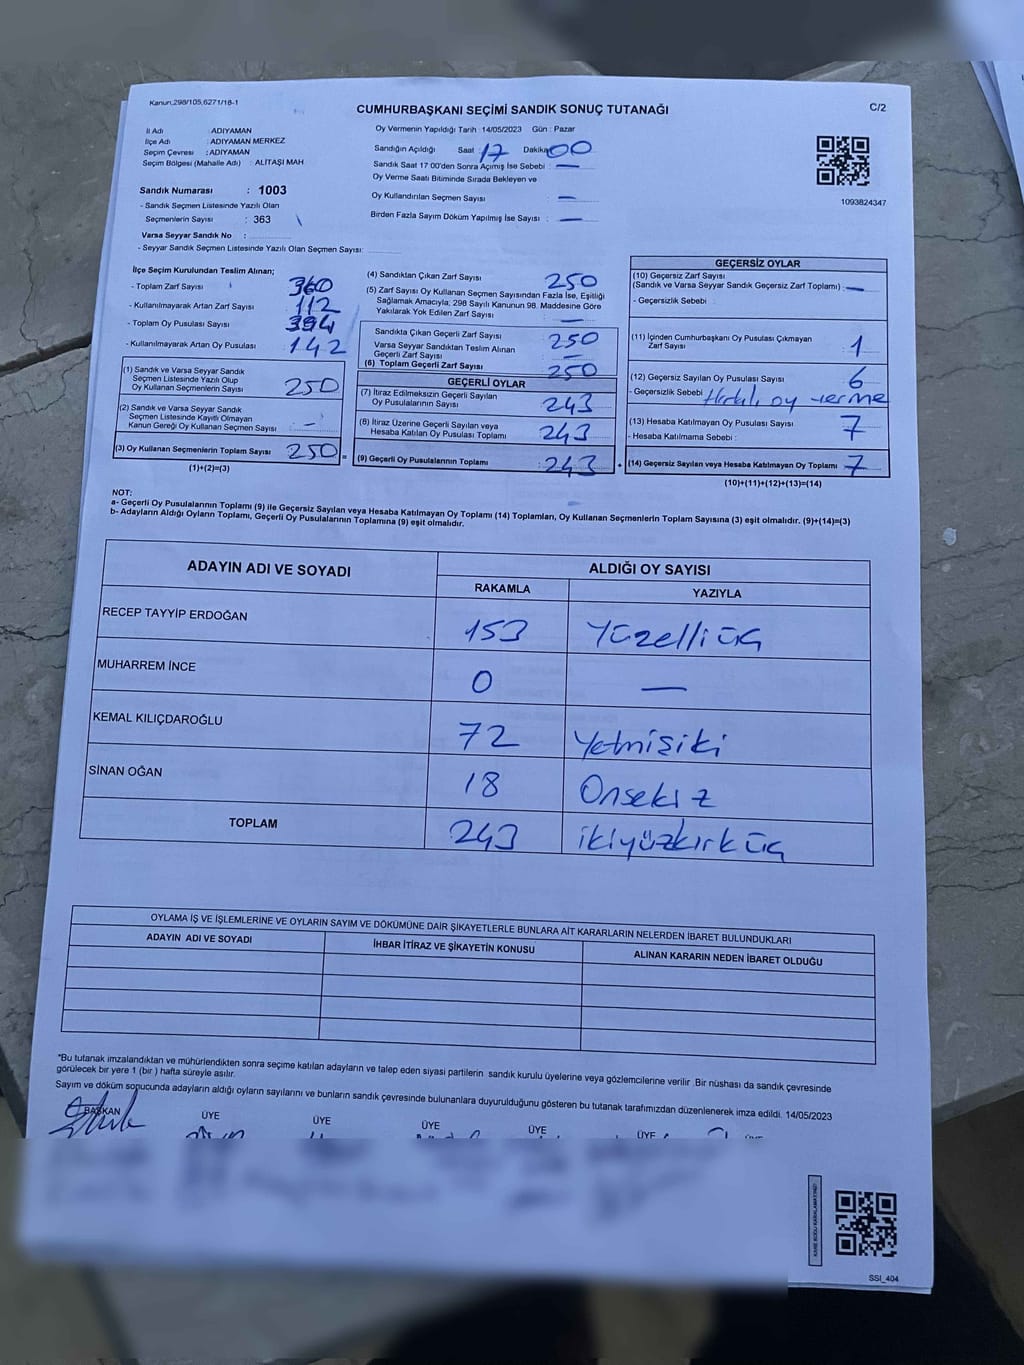 Kanun,298/105,6271/18-1
CUMHURBAŞKANI SEÇİMİ SANDIK SONUÇ TUTANAĞI
C/2
İl Adı : ADIYAMAN
İlçe Adı : ADIYAMAN MERKEZ
Seçim Çevresi : ADIYAMAN
Seçim Bölgesi (Mahalle Adı) : ALİTAŞI MAH
Sandık Numarası : 1003
- Sandık Seçmen Listesinde Yazılı Olan
Seçmenlerin Sayısı : 363
Varsa Seyyar Sandık No :
- Seyyar Sandık Seçmen Listesinde Yazılı Olan Seçmen Sayısı:
Oy Vermenin Yapıldığı Tarih :14/05/2023 Gün : Pazar
Sandığın Açıldığı Saat : 17 Dakika: 00
Sandık Saat 17:00'den Sonra Açımış İse Sebebi : —
Oy Verme Saati Bitiminde Sırada Bekleyen ve
Oy Kullandırılan Seçmen Sayısı : —
Birden Fazla Sayım Döküm Yapılmış İse Sayısı : —
1093824347
İlçe Seçim Kurulundan Teslim Alınan;
- Toplam Zarf Sayısı : 360
- Kullanılmayarak Artan Zarf Sayısı : 112
- Toplam Oy Pusulası Sayısı : 394
- Kullanılmayarak Artan Oy Pusulası : 142
(1) Sandık ve Varsa Seyyar Sandık
Seçmen Listesinde Yazılı Olup
Oy Kullanan Seçmenlerin Sayısı : 250
(2) Sandık ve Varsa Seyyar Sandık
Seçmen Listesinde Kayıtlı Olmayan
Kanun Gereği Oy Kullanan Seçmen Sayısı : -
(3) Oy Kullanan Seçmenlerin Toplam Sayısı : 250 =
(1)+(2)=(3)
(4) Sandıktan Çıkan Zarf Sayısı : 250
(5) Zarf Sayısı Oy Kullanan Seçmen Sayısından Fazla İse, Eşitliği
Sağlamak Amacıyla; 298 Sayılı Kanunun 98. Maddesine Göre
Yakılarak Yok Edilen Zarf Sayısı : —
Sandıkta Çıkan Geçerli Zarf Sayısı : 250
Varsa Seyyar Sandıktan Teslim Alınan
Geçerli Zarf Sayısı : —
(6) Toplam Geçerli Zarf Sayısı : 250
GEÇERLİ OYLAR
(7) İtiraz Edilmeksizin Geçerli Sayılan
Oy Pusulalarının Sayısı : 243
(8) İtiraz Üzerine Geçerli Sayılan veya
Hesaba Katılan Oy Pusulası Toplamı : 243
(9) Geçerli Oy Pusulalarının Toplamı : 243 +
GEÇERSİZ OYLAR
(10) Geçersiz Zarf Sayısı
(Sandık ve Varsa Seyyar Sandık Geçersiz Zarf Toplamı) : —
- Geçersizlik Sebebi :
(11) İçinden Cumhurbaşkanı Oy Pusulası Çıkmayan
Zarf Sayısı : 1
(12) Geçersiz Sayılan Oy Pusulası Sayısı : 6
- Geçersizlik Sebebi : oy verme
(13) Hesaba Katılmayan Oy Pusulası Sayısı : 7
- Hesaba Katılmama Sebebi :
(14) Geçersiz Sayılan veya Hesaba Katılmayan Oy Toplamı : 7
(10)+(11)+(12)+(13)=(14)
NOT:
a- Geçerli Oy Pusulalarının Toplamı (9) ile Geçersiz Sayılan veya Hesaba Katılmayan Oy Toplamı (14) Toplamları, Oy Kullanan Seçmenlerin Toplam Sayısına (3) eşit olmalıdır. (9)+(14)=(3)
b- Adayların Aldığı Oyların Toplamı, Geçerli Oy Pusulalarının Toplamına (9) eşit olmalıdır.
ADAYIN ADI VE SOYADI
ALDIĞI OY SAYISI
RAKAMLA YAZIYLA
RECEP TAYYİP ERDOĞAN 153 Yüzelliüç
MUHARREM İNCE 0 —
KEMAL KILIÇDAROĞLU 72 Yetmişiki
SİNAN OĞAN 18 Onsekiz
TOPLAM 243 ikiyüzkırküç
OYLAMA İŞ VE İŞLEMLERİNE VE OYLARIN SAYIM VE DÖKÜMÜNE DAİR ŞİKAYETLERLE BUNLARA AİT KARARLARIN NELERDEN İBARET BULUNDUKLARI
ADAYIN ADI VE SOYADI İHBAR İTİRAZ VE ŞİKAYETİN KONUSU ALINAN KARARIN NEDEN İBARET OLDUĞU
*Bu tutanak imzalandıktan ve mühürlendikten sonra seçime katılan adayların ve talep eden siyasi partilerin sandık kurulu üyelerine veya gözlemcilerine verilir .Bir nüshası da sandık çevresinde
görülecek bir yere 1 (bir ) hafta süreyle asılır.
Sayım ve döküm sonucunda adayların aldığı oyların sayılarını ve bunların sandık çevresinde bulunanlara duyurulduğunu gösteren bu tutanak tarafımızdan düzenlenerek imza edildi. 14/05/2023
BAŞKAN ÜYE ÜYE ÜYE ÜYE ÜYE ÜYE
SSI_404